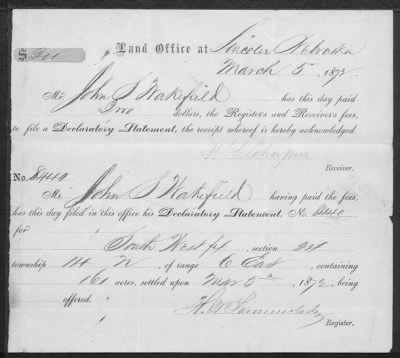 $ 200
Land Office at Lincoln Nebraska
March 5 1872
Mr. John S Wakefield has this day paid
Two dollars, the Register's and Receiver's fees,
to file a Declaratory Statement, the receipt whereof is hereby acknowledged.
Receiver.
No. 8440
Mr. John S Wakefield having paid the fees,
has this day filed in this office his Declaratory Statement, No. 8440
for
South West ¼, section
township 14 N, of range 6 East, containing
160 acres, settled upon Mar 5" 1872, being
offered.
Register.